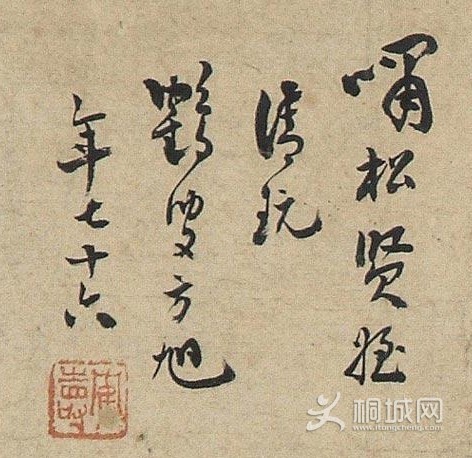 嘯松賢姪
清玩
鶴叟方旭
年七十六
桐城网
www.itongcheng.com